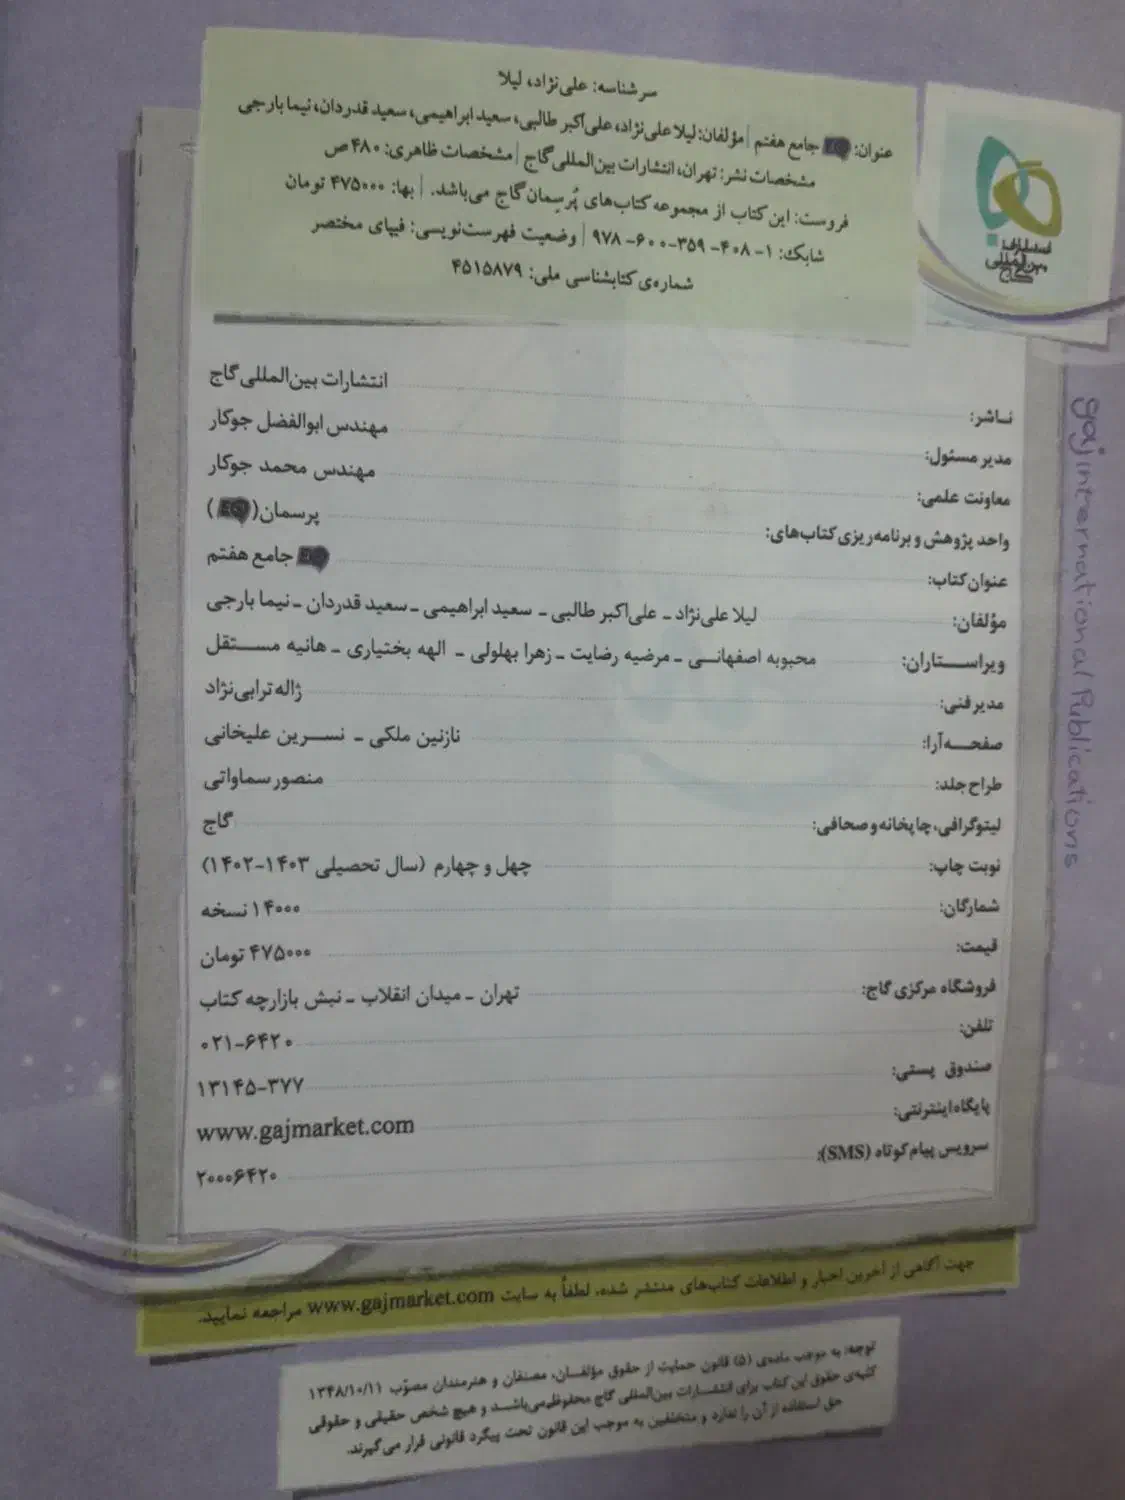 سرشناسه: علی‌نژاد، لیلا
عنوان: EQ جامع هفتم | مؤلفان: لیلا علی‌نژاد، علی‌اکبر طالبی، سعید ابراهیمی، سعید قدردان، نیما بارجی
مشخصات نشر: تهران، انتشارات بین‌المللی گاج | مشخصات ظاهری: ۴۸۰ ص
فروست: این کتاب از مجموعه کتاب‌های پُرسِمان گاج می‌باشد. | بها: ۴۷۵۰۰۰ تومان
شابک: ۱-۴۰۸-۳۵۹-۶۰۰-۹۷۸ | وضعیت فهرست‌نویسی: فیپای مختصر
شماره‌ی کتابشناسی ملی: ۴۵۱۵۸۷۹
انتشارات
بین‌المللی
گاج
gaj international Publications
ناشر: انتشارات بین‌المللی گاج
مدیر مسئول: مهندس ابوالفضل جوکار
معاونت علمی: مهندس محمد جوکار
واحد پژوهش و برنامه‌ریزی کتاب‌های: پرسمان (EQ)
عنوان کتاب: EQ جامع هفتم
مؤلفان: لیلا علی‌نژاد ـ علی‌اکبر طالبی ـ سعید ابراهیمی ـ سعید قدردان ـ نیما بارجی
ویراستاران: محبوبه اصفهانی ـ مرضیه رضایت ـ زهرا بهلولی ـ الهه بختیاری ـ هانیه مستقل
مدیر فنی: ژاله ترابی‌نژاد
صفحه‌آرا: نازنین ملکی ـ نسرین علیخانی
طراح جلد: منصور سماواتی
لیتوگرافی، چاپخانه و صحافی: گاج
نوبت چاپ: چهل و چهارم (سال تحصیلی ۱۴۰۳-۱۴۰۲)
شمارگان: ۱۴۰۰۰ نسخه
قیمت: ۴۷۵۰۰۰ تومان
فروشگاه مرکزی گاج: تهران ـ میدان انقلاب ـ نبش بازارچه کتاب
تلفن: ۰۲۱-۶۴۲۰
صندوق پستی: ۱۳۱۴۵-۳۷۷
پایگاه اینترنتی: www.gajmarket.com
سرویس پیام کوتاه (SMS): ۲۰۰۰۶۴۲۰
جهت آگاهی از آخرین اخبار و اطلاعات کتاب‌های منتشر شده، لطفاً به سایت www.gajmarket.com مراجعه نمایید.
توجه: به موجب ماده‌ی (۵) قانون حمایت از حقوق مؤلفان، مصنفان و هنرمندان مصوّب ۱۳۴۸/۱۰/۱۱
کلیه‌ی حقوق این کتاب برای انتشارات بین‌المللی گاج محفوظ می‌باشد و هیچ شخص حقیقی و حقوقی
حق استفاده از آن را ندارد و متخلفین به موجب این قانون تحت پیگرد قانونی قرار می‌گیرند.